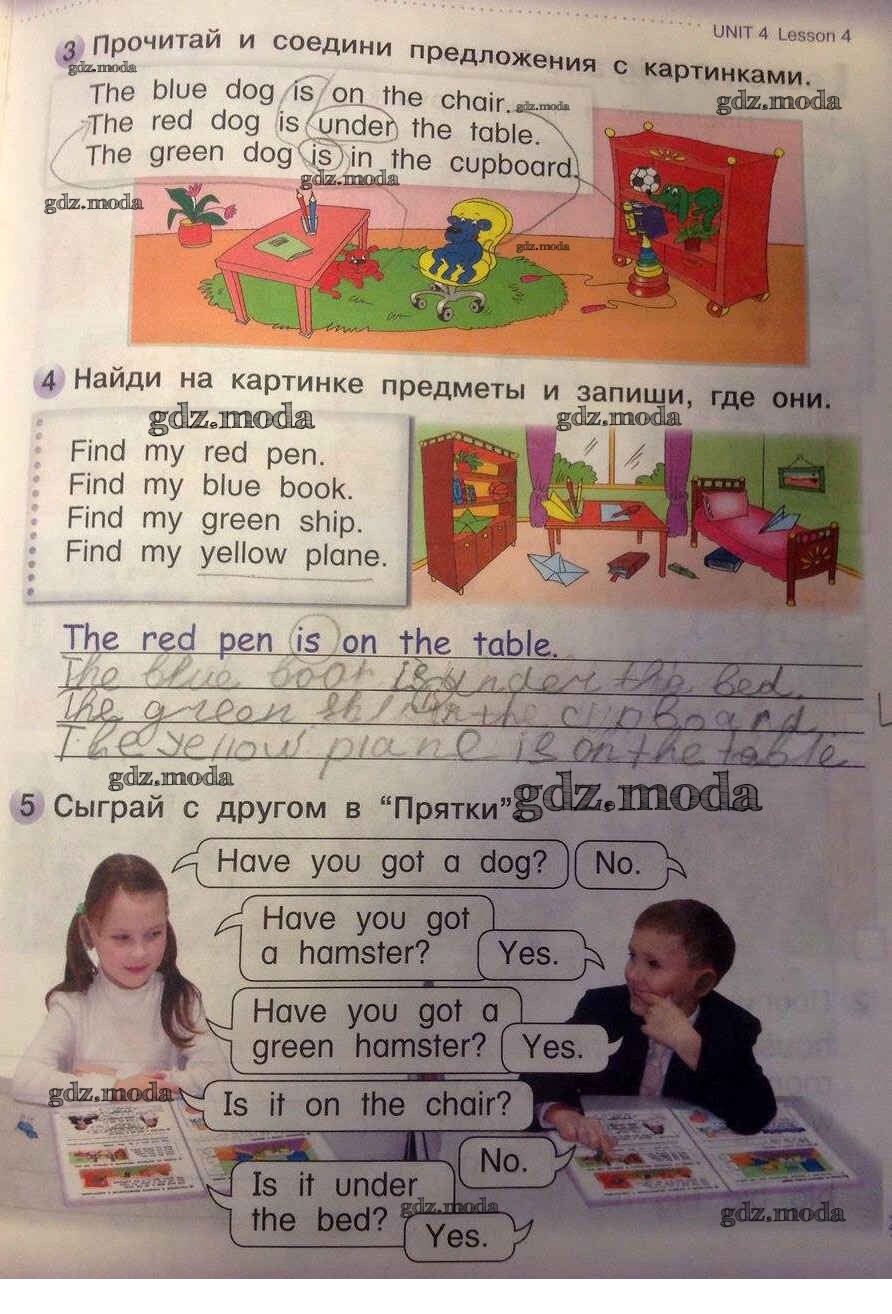 UNIT 4 Lesson 4
3 Прочитай и соедини предложения с картинками.
gdz.moda
The blue dog is on the chair.
gdz.moda
gdz.moda
The red dog is under the table.
The green dog is in the cupboard.
gdz.moda
gdz.moda
gdz.moda
4 Найди на картинке предметы и запиши, где они.
gdz.moda
gdz.moda
Find my red pen.
Find my blue book.
Find my green ship.
Find my yellow plane.
The red pen is on the table.
The blue book is under the bed.
The green ship in the cupboard
The yellow plane is on the table
gdz.moda
gdz.moda
5 Сыграй с другом в "Прятки"
Have you got a dog?
No.
Have you got
a hamster?
Yes.
Have you got a
green hamster?
Yes.
gdz.moda
Is it on the chair?
No.
Is it under
the bed?
gdz.moda
gdz.moda
Yes.